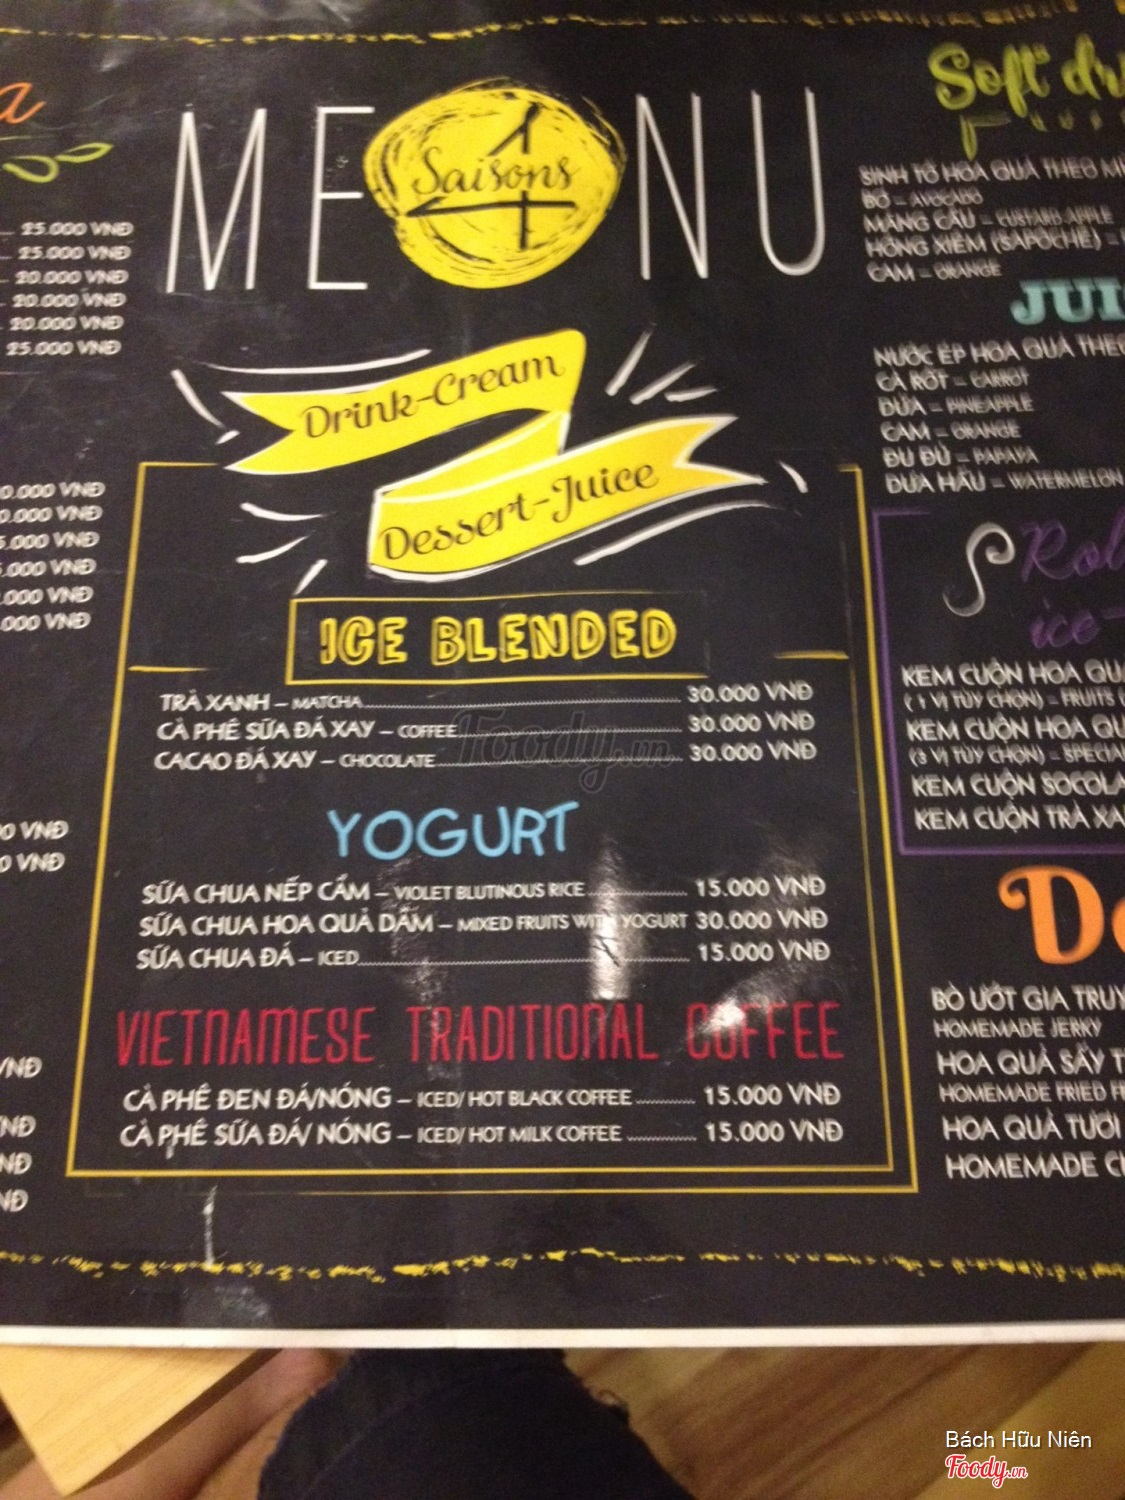 a
25.000 VNĐ
25.000 VNĐ
20.000 VNĐ
20.000 VNĐ
20.000 VNĐ
25.000 VNĐ
0.000 VNĐ
0.000 VNĐ
5.000 VNĐ
5.000 VNĐ
.000 VNĐ
.000 VNĐ
0 VNĐ
0 VNĐ
VNĐ
NĐ
NĐ
NĐ
MENU
4 Saisons
Drink-Cream
Dessert-Juice
ICE BLENDED
TRÀ XANH – MATCHA 30.000 VNĐ
CÀ PHÊ SỮA ĐÁ XAY – COFFEE 30.000 VNĐ
CACAO ĐÁ XAY – CHOCOLATE 30.000 VNĐ
YOGURT
SỮA CHUA NẾP CẨM – VIOLET BLUTINOUS RICE 15.000 VNĐ
SỮA CHUA HOA QUẢ DẦM – MIXED FRUITS WITH YOGURT 30.000 VNĐ
SỮA CHUA ĐÁ – ICED 15.000 VNĐ
VIETNAMESE TRADITIONAL COFFEE
CÀ PHÊ ĐEN ĐÁ/NÓNG – ICED/ HOT BLACK COFFEE 15.000 VNĐ
CÀ PHÊ SỮA ĐÁ/ NÓNG – ICED/ HOT MILK COFFEE 15.000 VNĐ
Soft dr
SINH TỐ HOA QUẢ THEO M
BƠ – AVOCADO
MÃNG CẦU – CUSTARD APPLE
HỒNG XIÊM (SAPÔCHÊ) –
CAM – ORANGE
JUI
NƯỚC ÉP HOA QUẢ THEO
CÀ RỐT – CARROT
DỨA – PINEAPPLE
CAM – ORANGE
ĐU ĐỦ – PAPAYA
DƯA HẤU – WATERMELON
Rol
ice-
KEM CUỘN HOA QU
( 1 VỊ TÙY CHỌN) – FRUITS
KEM CUỘN HOA QU
(3 VỊ TÙY CHỌN) – SPECIA
KEM CUỘN SOCOLA
KEM CUỘN TRÀ XA
De
BÒ ƯỚT GIA TRUY
HOMEMADE JERKY
HOA QUẢ SẤY T
HOMEMADE FRIED F
HOA QUẢ TƯƠI
HOMEMADE C
Foody.vn
Bách Hữu Niên
Foody.vn